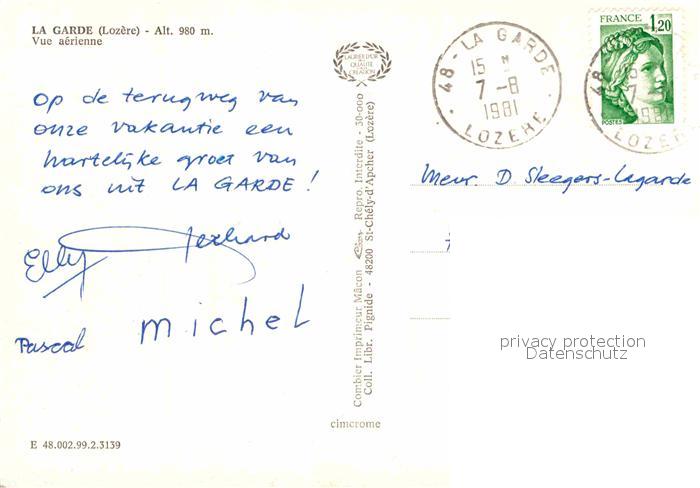 LA GARDE (Lozère) - Alt. 980 m.
Vue aérienne
LAURIER D'OR
DE LA
QUALITÉ
CRÉATION
48 - LA GARDE
15 H
7 - 8
1981
LOZERE
FRANCE
1,20
POSTES
48
7
1981
LOZERE
op de terugweg van
onze vakantie een
hartelijke groet van
ons uit LA GARDE!
Elly Gerhard
michel
Pascal
Mevr. D. Sleegers-Lagarde
Combier Imprimeur Mâcon Repro. Interdite - 30-000
Coll. Libr. Pignide - 48200 St-Chély-d'Apcher (Lozère)
cimcrome
privacy protection
Datenschutz
E 48.002.99.2.3139